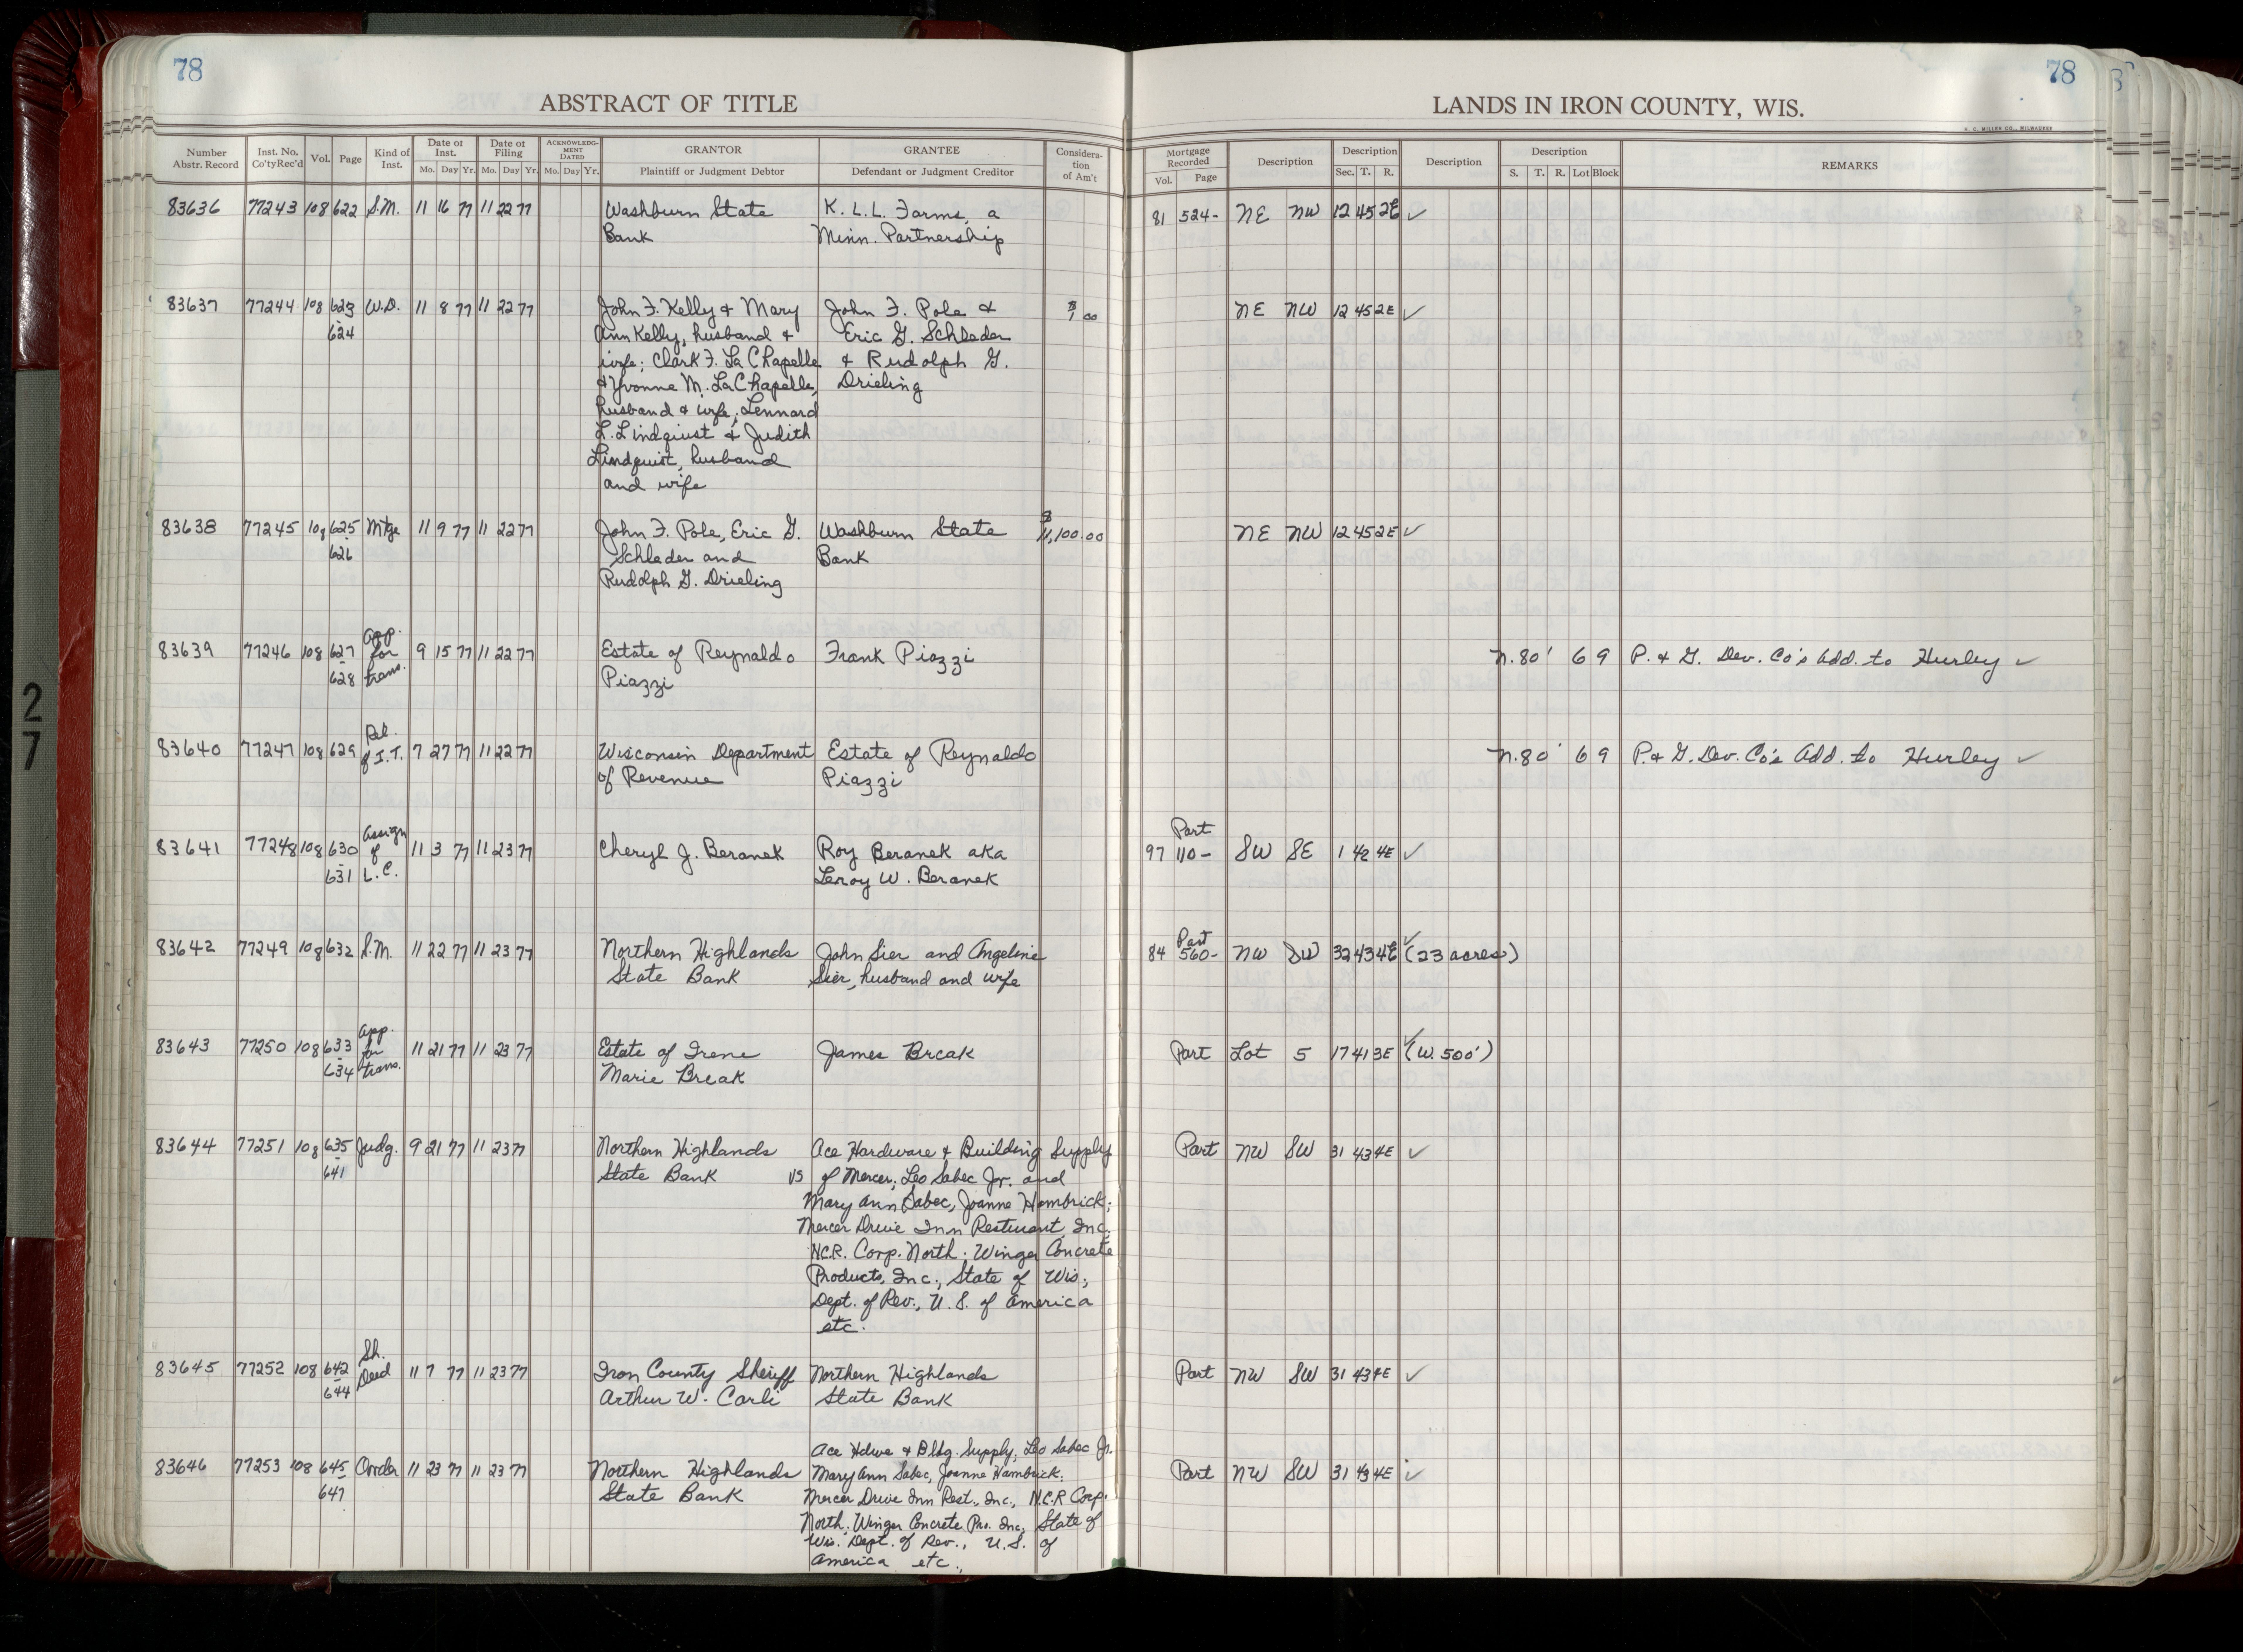 78
78
ABSTRACT OF TITLE
LANDS IN IRON COUNTY, WIS.
H. C. MILLER CO., MILWAUKEE
Number Abstr. Record Inst. No. Co'ty Rec'd Vol. Page Kind of Inst. Date of Inst. Mo. Day Yr. Date of Filing Mo. Day Yr. ACKNOWLEDGMENT DATED Mo. Day Yr. GRANTOR Plaintiff or Judgment Debtor GRANTEE Defendant or Judgment Creditor Consideration of Am't Mortgage Recorded Vol. Page Description Description Sec. T. R. Description Description S. T. R. Lot Block REMARKS
83636 77243 108 622 S.M. 11 16 77 11 22 77 Washburn State K. L. L. Farms, a 81 524- NE NW 12 45 2E ✓
Bank Minn. Partnership
83637 77244 108 623 W.D. 11 8 77 11 22 77 John F. Kelly & Mary John F. Pole & $1 00 NE NW 12 45 2E ✓
- 624 Ann Kelly, husband & Eric G. Schleder
wife; Clark F. La Chapelle & Rudolph G.
& Yvonne M. LaChapelle, Drieling
husband & wife; Lennard
L. Lindquist & Judith
Lindquist, husband
and wife
83638 77245 108 625 Mtge 11 9 77 11 22 77 John F. Pole, Eric G. Washburn State $11,100.00 NE NW 12 45 2E ✓
- 626 Schleder and Bank
Rudolph G. Drieling
83639 77246 108 627 App. for trans. 9 15 77 11 22 77 Estate of Reynaldo Frank Piazzi N. 80' 6 9 P. & G. Dev. Co's Add. to Hurley ✓
- 628 Piazzi
83640 77247 108 629 Rel. of I.T. 7 27 77 11 22 77 Wisconsin Department Estate of Reynaldo N. 80' 6 9 P. & G. Dev. Co's Add. to Hurley ✓
of Revenue Piazzi
83641 77248 108 630 Assign of L.C. 11 3 77 11 23 77 Cheryl J. Beranek Roy Beranek aka 97 110- Part SW SE 1 42 4E ✓
- 631 Leroy W. Beranek
83642 77249 108 632 S.M. 11 22 77 11 23 77 Northern Highlands John Sier and Angeline 84 560- Part NW SW 32 43 4E ✓ (23 acres)
State Bank Sier, husband and wife
83643 77250 108 633 App. for trans. 11 21 77 11 23 77 Estate of Irene James Break Part Lot 5 17 41 3E ✓ (W. 500')
- 634 Marie Break
83644 77251 108 635 Judg. 9 21 77 11 23 77 Northern Highlands Ace Hardware & Building Supply Part NW SW 31 43 4E ✓
- 641 State Bank vs of Mercer; Leo Sabec Jr. and
Mary Ann Sabec, Joanne Hambrick;
Mercer Drive Inn Resturant, Inc.
N.C.R. Corp. North; Winger Concrete
Products, Inc., State of Wis.,
Dept. of Rev., U. S. of America
etc.
83645 77252 108 642 Sh. Deed 11 7 77 11 23 77 Iron County Sheriff Northern Highlands Part NW SW 31 43 4E ✓
- 644 Arthur W. Carli State Bank
Ace Hdwe & Bldg. Supply, Leo Sabec Jr.
83646 77253 108 645 Order 11 23 77 11 23 77 Northern Highlands Mary Ann Sabec, Joanne Hambrick. Part NW SW 31 43 4E ✓
- 647 State Bank Mercer Drive Inn Rest., Inc., N.C.R Corp.
North; Winger Concrete Pro. Inc, State of
Wis. Dept. of Rev., U.S. of
America etc.,
27